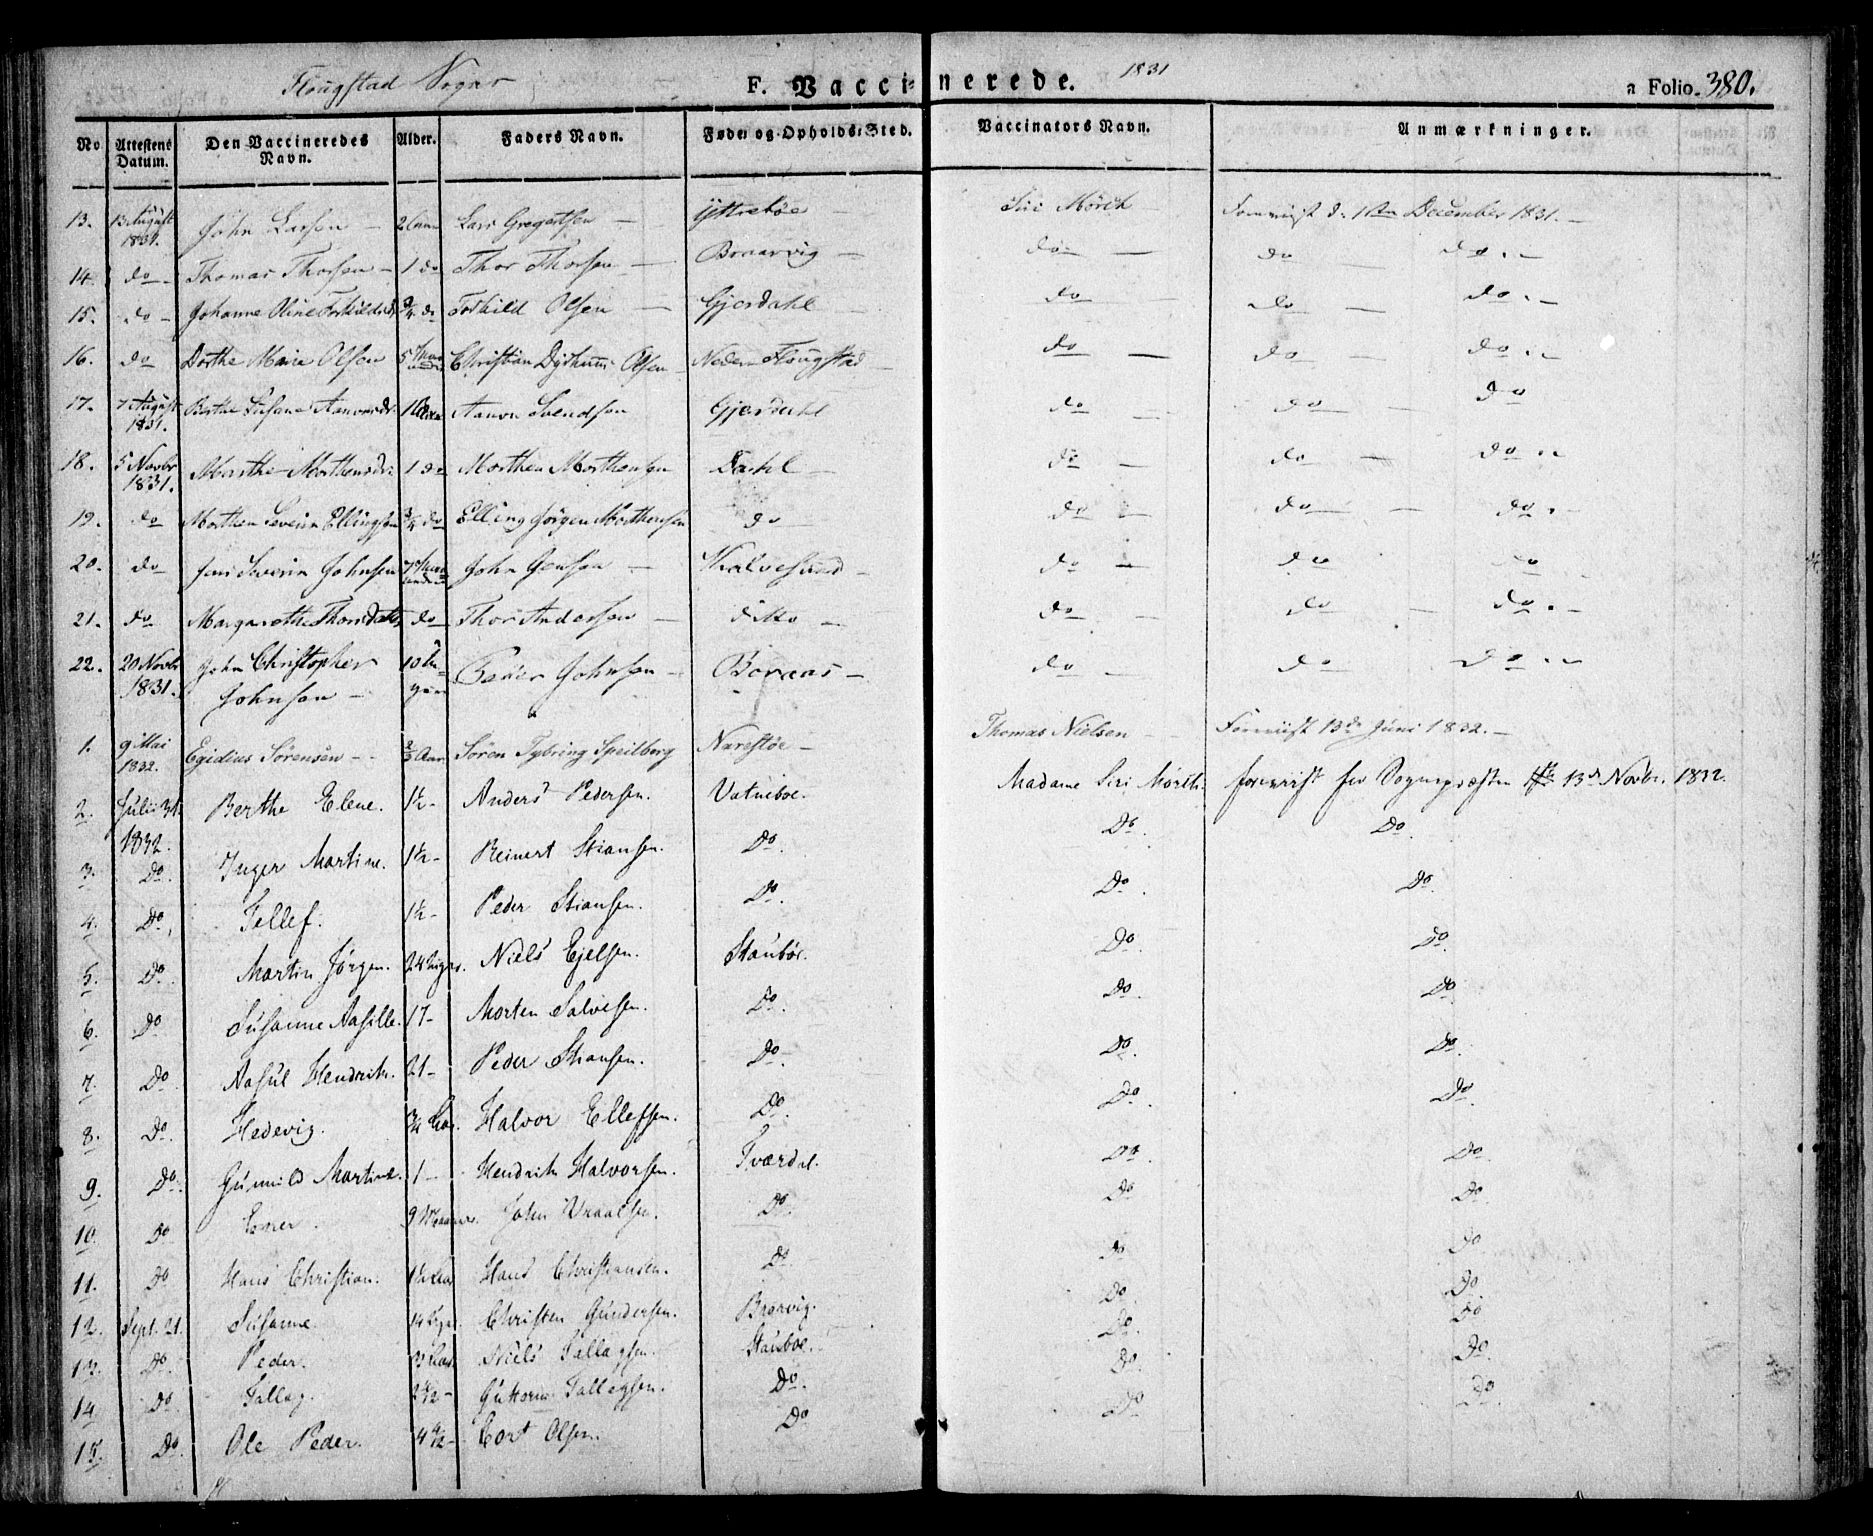 Flougstad Sogn
F. Vaccinerede. 1831
a Folio 380.
No Attestens Datum. Den Vaccineredes Navn. Alder. Faders Navn. Føde- og Opholds-Sted. Vaccinators Navn. Anmærkninger.
13. 13 August 1831. John Larsen 2 Lars Gregertsen Yttrebøe Siri Mörch Foreviist d. December 1831.
14. do Thomas Thorsen 1 do Thor Thorsen Braarvig do do do
15. do Johanne Oline 3/4 do Torkild Olsen Gjerdahl do do do
16. do Dorthe Marie Olsen 5 Christian Olsen Neder Flougstad do do do
17. 7 August 1831. Berthe Susane 1 Aanon Svendsen Gjerdahl do do do
18. 5 Novbr 1831. Marthe Morthensdr: 1 do Morthen Morthensen Dahl do do do
19. do Morthen Severin Ellingsen 3/4 do Elling Jörgen Morthensen do do do do
20. do Jens Severin Johnsen 7 John Jensen Kalvesund do do do
21. do Margarethe do Thor Andersen ditto do do do
22. 20 Novbr 1831. John Christopher Johnsen 10 Peder Johnsen Boraas do do do
1. 9 Mai 1832. Egidius Sörensen 2/3 Aar Sören Tybring Speilberg Narestöe Thomas Nielsen Foreviist 13de Juni 1832.
2. Julii 31 1832. Berthe Elene. 1½ Anders Pedersen. Vatneboe. Madame Siri Mörch. foreviist for Sognepræsten 13de Novbr. 1832.
3. Do. Inger Martine. 1½ Reinert Stiansen. Do. Do. Do.
4. Do. Tellef. 1½ Peder Stiansen. Do. Do. Do.
5. Do. Martin Jörgen. 24 Uger. Niels Ejelsen. Stauböe. Do. Do.
6. Do Susanne Aasille. 17 Morten Salvesen. Do. Do. Do.
7. Do Aasul Hendrik. 21 Peder Stiansen. Do. Do. Do.
8. Do. Hedevig. 3/4 Aar. Halvor Ellefsen. Do. Do. Do.
9. Do. Gunnild Martine. 1 Hendrik Halvorsen. Tværdal. Do. Do.
10. Do 9 Maaner. John Do. Do Do.
11. Do Hans Christian. 1½ Aar Hans Christiansen. Do Do Do
12. Sept. 21. Susanne. 14 Uger. Christen Gundersen. Brarvig. Do. Do.
13. Do. Peder. Niels Tallagsen. Stauboe. Do. Do
14 Do. Tallag. 2½ Guttorm Tallagsen. Do. Do. Do.
15. Do. Ole Peder. 4½ Cort Olsen. Do Do Do